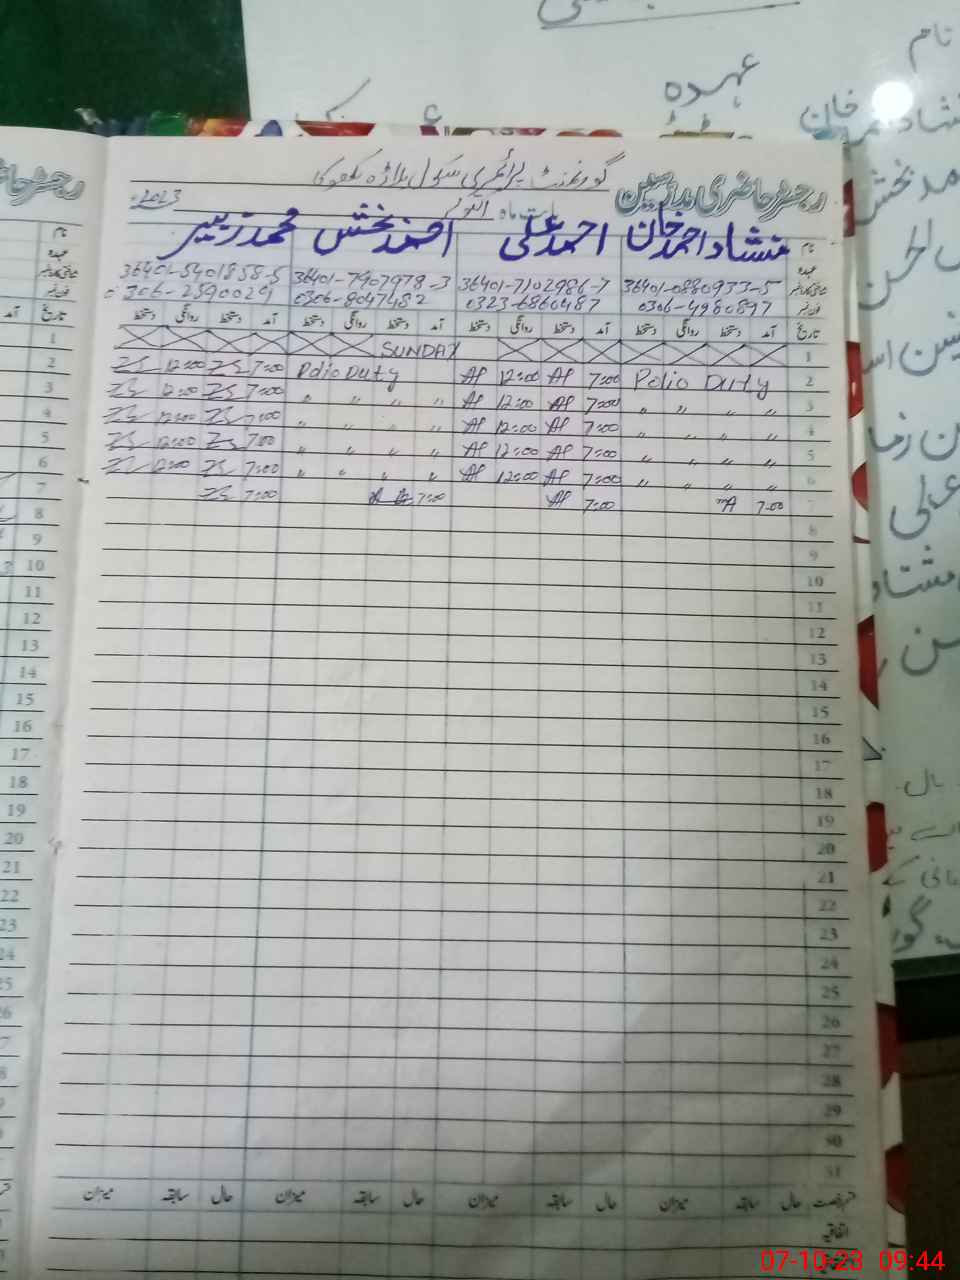 رجسٹر حاضری مدرسین گورنمنٹ پرائمری سکول
بابت ماہ اکتوبر 2023ء
نام منشاد احمد خان احمد علی احمد بخش محمد زبیر
عہدہ
36401-0880933-5 36401-7102986-7 36401-7907978-3 36401-5401858-5
0306-4980897 0323-6860487 0306-8047482 0306-2590029
تاریخ آمد دستخط روانگی دستخط آمد دستخط روانگی دستخط آمد دستخط روانگی دستخط آمد دستخط روانگی دستخط
1 SUNDAY
2 Polio Duty 7:00 AP 12:00 AP Polio Duty 7:00 ZS 12:00 ZS
3 " " " " 7:00 AP 12:00 AP " " " " 7:00 ZS 12:00 ZS
4 " " " " 7:00 AP 12:00 AP " " " " 7:00 ZS 12:00 ZS
5 " " " " 7:00 AP 12:00 AP " " " " 7:00 ZS 12:00 ZS
6 " " " " 7:00 AP 12:00 AP " " " " 7:00 ZS 12:00 ZS
7 7:00 mA 7:00 AP 7:00 7:00 ZS
8
9
10
11
12
13
14
15
16
17
18
19
20
21
22
23
24
25
26
27
28
29
30
31
قسم رخصت حال سابقہ میزان حال سابقہ میزان حال سابقہ میزان حال سابقہ میزان
اتفاقیہ
رجسٹر حاضری
نام
عہدہ
تاریخ آمد
1
2
3
4
5
6
7
8
9
10
11
12
13
14
15
16
17
18
19
20
21
22
23
24
25
26
نام
عہدہ
خان
07-10-23 09:44